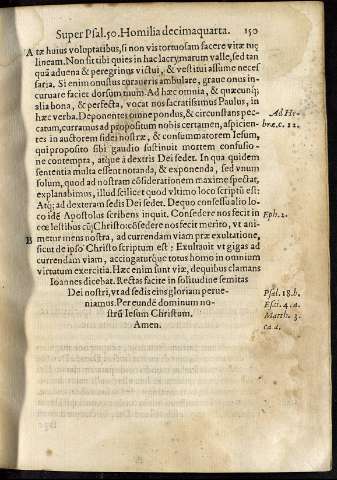 Super Psal.50. Homilia decimaquarta. 150
A tæ huius voluptatibus, si non vis tortuosam facere vitæ tuę
lineam. Non sit tibi quies in hac lacrymarum valle, sed tan
quā aduena & peregrinus victui, & vestitui assume neces
saria. Si enim onustus curaueris ambulare, graue onus in-
curuare faciet dorsum tuum. Ad hæc omnia, & quæcunq;
alia bona, & perfecta, vocat nos sacratissimus Paulus, in
hæc verba. Deponentes omne pondus, & circunstans pec-
catum, curramus ad propositum nobis certamen, aspicien-
tes in auctorem fidei nostræ, & consummatorem Iesum,
qui proposito sibi gaudio sustinuit mortem confusio-
ne contempta, atque à dextris Dei sedet. In qua quidem
sententia multa essent notanda, & exponenda, sed vnum
solum, quod ad nostram cōsiderationem maxime spectat,
explanabimus, illud scilicet quod vltimo loco scriptū est:
Atq; ad dexteram sedis Dei sedet. Dequo confessu alio lo-
co idē Apostolus scribens inquit. Consedere nos fecit in
cœlestibus cū Christo: cōsedere nos fecit merito, vt ani-
B metur mens nostra, ad currendam viam præ exultatione,
sicut de ipso Christo scriptum est: Exultauit vt gigas ad
currendam viam, accingaturque totus homo in omnium
virtutum exercitia. Hæc enim sunt viæ, dequibus clamans
Ioannes dicebat. Rectas facite in solitudine semitas
Dei nostri, vt ad sedis eius gloriam perue-
niamus. Per eundē dominum no-
strū Iesum Christum.
Amen.
Ad He-
bræ.c. 12.
Eph. 2.
Psal. 18.b.
Esai. 4.a.
Matth. 3.
ca.a.